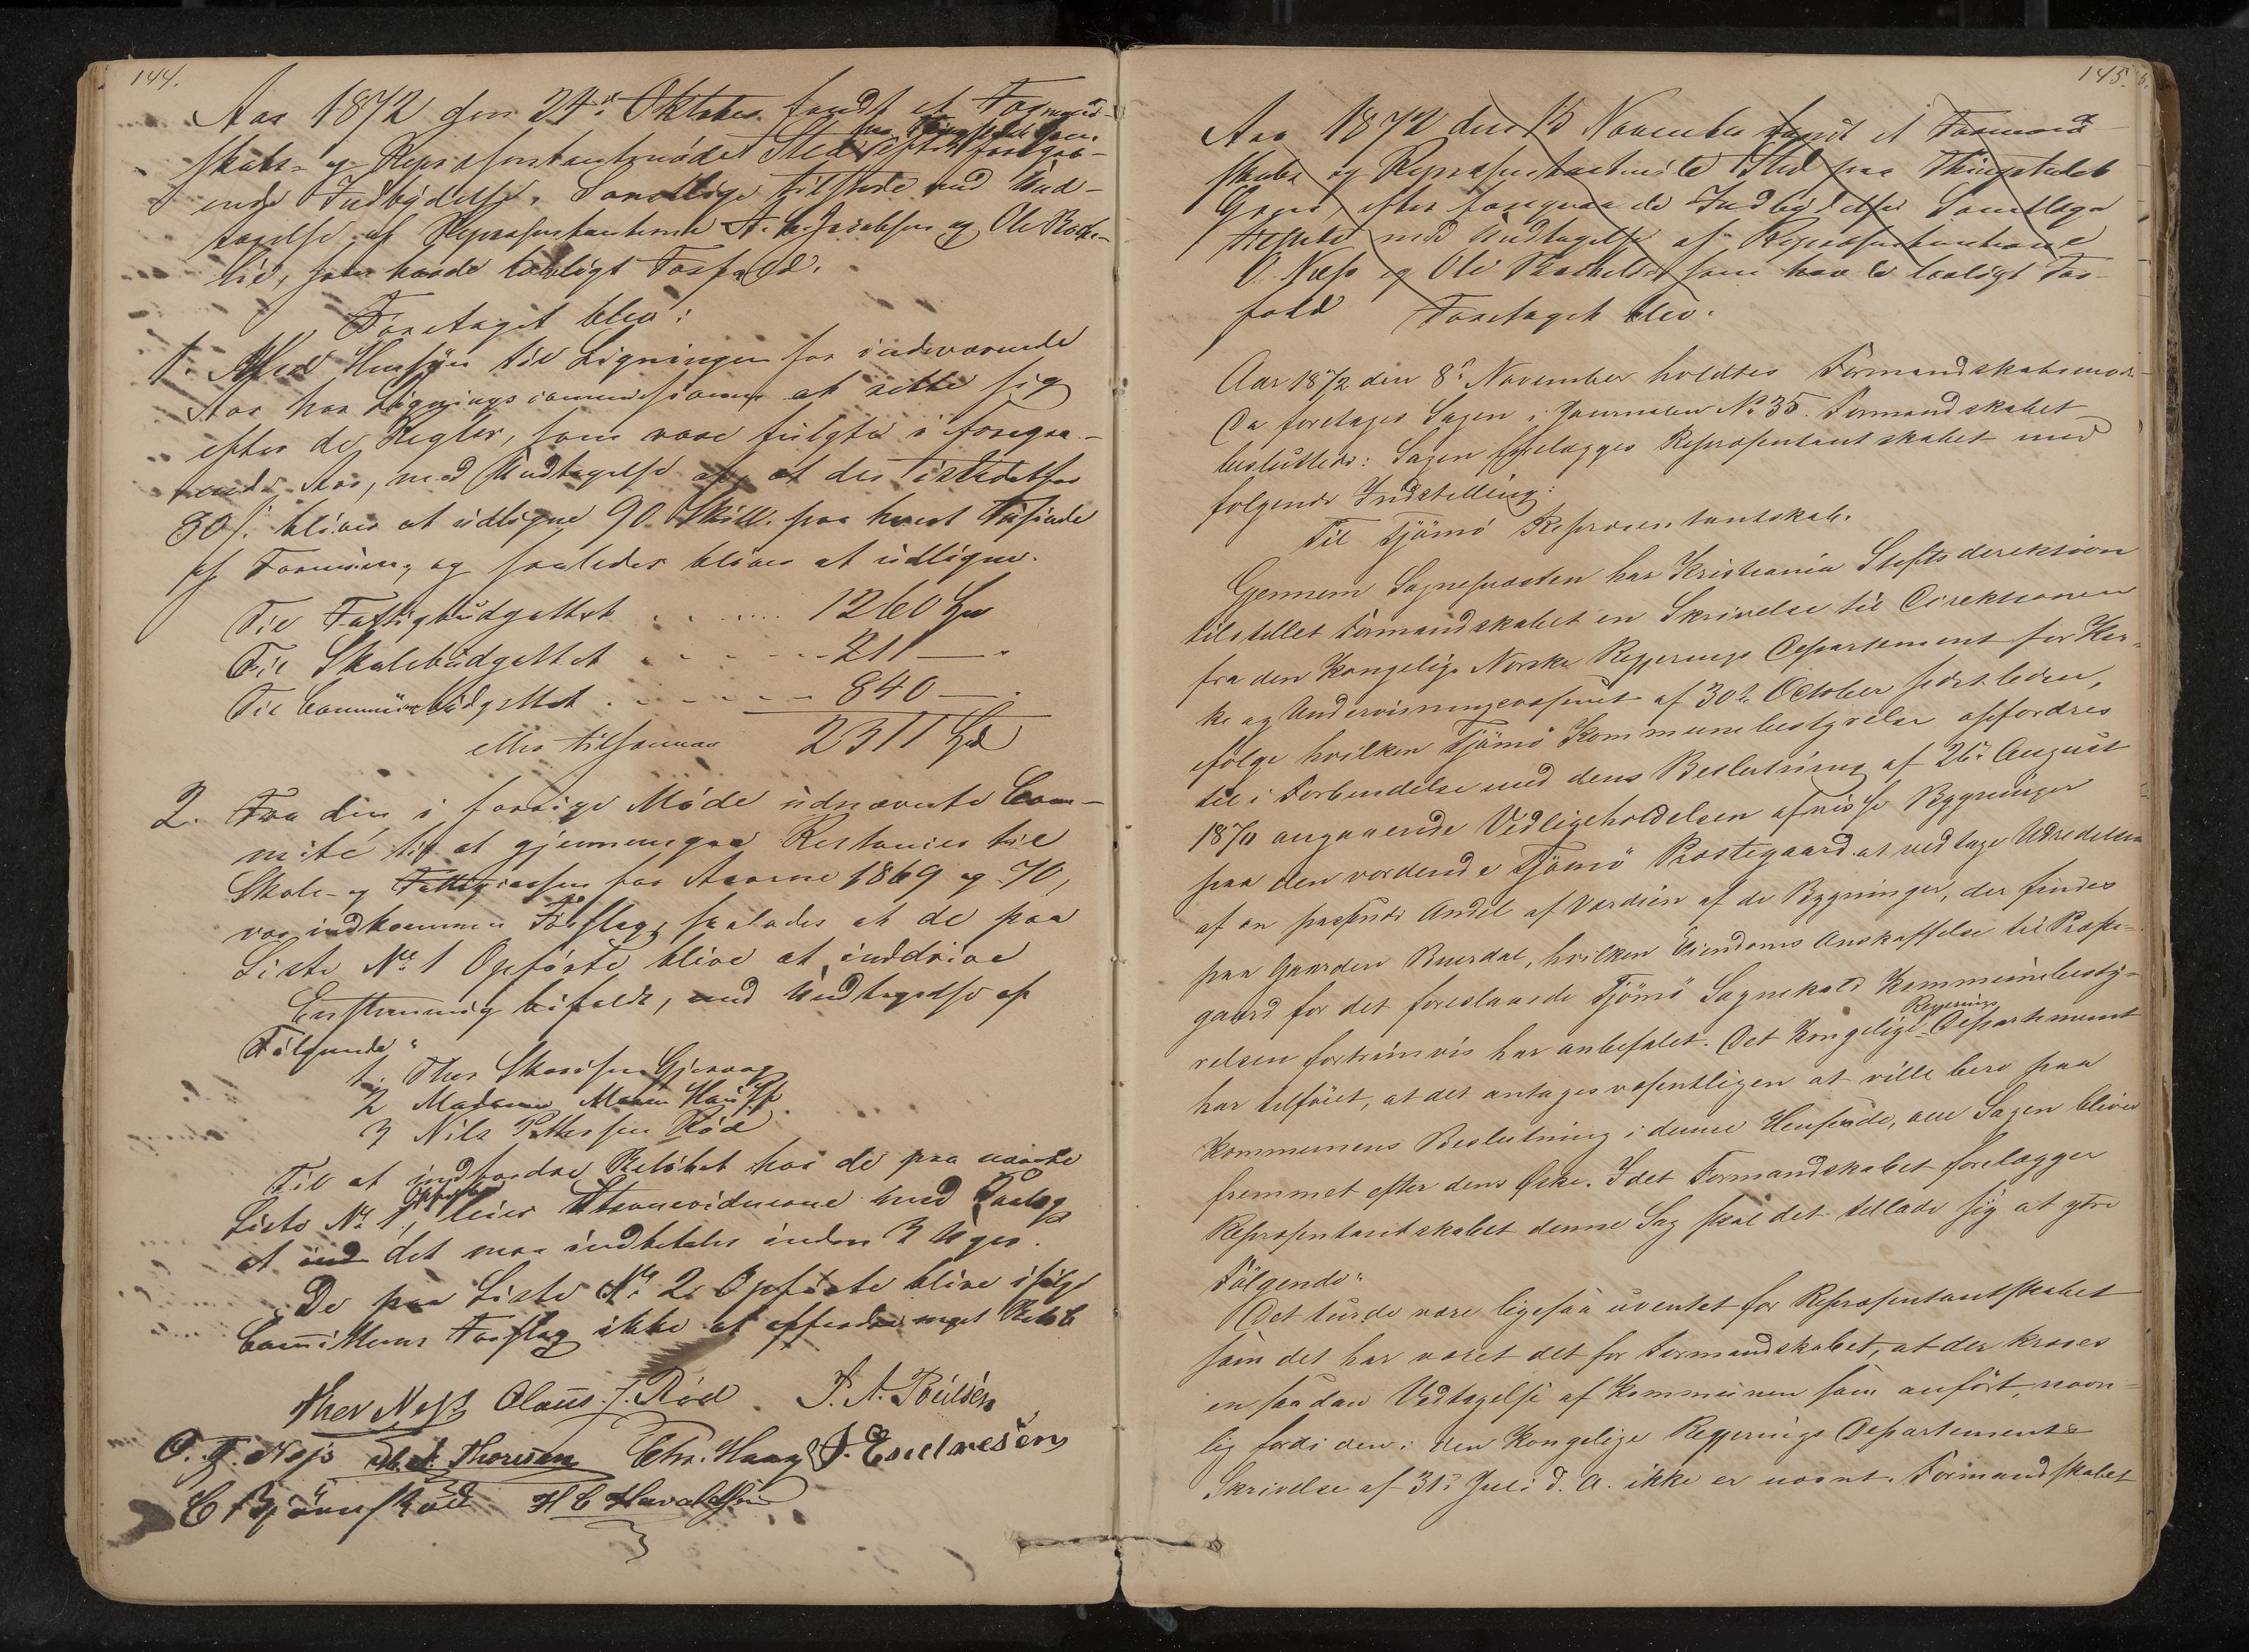 144.
Aar 1872 den 24de Oktober fandt et Formand-
skabs- og Repræsentantmöde Sted efter foregaa-
ende Indbydelse. Samtlige tilstede med Und-
tagelse af Repræsentanterne A. Jacobsen og Ole Bakke-
lid, som havde lovligt Forfald.
Foretaget blev:
1. Med Hensyn til Ligningen for indeværende
Aar har Ligningscommissionen at rette sig
efter de Regler, som vare fulgte i foregaa-
ende Aar, med Undtagelse af, at der istedetfor
80 s. bliver at udligne 90 Skill. paa hvert Tusinde
af Formuen, og saaledes bliver at udligne.
Til Fattigbudgettet . . . . . . 1260 Spd
Til Skolebudgettet . . . . . . 211 —
Til Communebudgettet . . . . . . 840 —
eller tilsammen 2311 Spd
2. Fra den i forrige Möde udnævnte Com-
mité til at gjennemgaa Restancer til
Skole- og Fattigcassen for Aarene 1869 og 70,
var indkommen Forslag, saaledes at de paa
Liste No 1 Opförte blive at inddrive
Enstemmig bifaldt, med Undtagelse af
Fölgende:
1. Thor
2 Madame Maren
3 Nils Pettersen Röd
Til at indfordre Restancen hos de paa nævnte
Liste No 1. Opförte, leies Stevnevidnerne med Paalæg
at det maa indbetales inden 3 Uger.
De paa Liste No 2 Opförte blive ifölge
Committeens Forslag ikke at affordre noget Belöb
Ther Næss Claus J. Röd P. A. Poulsen
O. T. Næss Thoresen Chr. Haug J. Endresen
C Björnsköd H C Havaldsen
145.
Aar 1872 den 15 November fandt et Formand-
skabs og Repræsentantmöde Sted paa Thingstedet
efter foregaaende Indbydelse Samtlige
tilstede med Undtagelse af Repræsentanterne
O. Næss og Ole Bakkelid som havde lovligt For-
fald Foretaget blev:
Aar 1872 den 8de November holdtes Formandskabsmöde.
Da foretages Sagen i Journalen No 35. Formandskabet
besluttede: Sagen forelægges Repræsentantskabet med
fölgende Indstilling:
Til Tjömö Repræsentantskab.
Gennem Sognepræsten har Kristiania Stiftsdirektion
tilstillet Formandskabet en Skrivelse til Direktionen
fra den Kongelige Norske Regjerings Departement for Kir-
ke og Undervisningsvæsenet af 30te October sidstleden,
ifölge hvilken Tjömö Kommunebestyrelse opfordres
til i Forbindelse med dens Beslutning af 26de August
1870 angaaende Vedligeholdelsen af visse Bygninger
paa den vordende Tjömö Præstegaard at vedtage Udredelsen
af en passende Andel af Værdien af de Bygninger, der findes
paa Gaarden Buerdal, hvilken Eiendoms Anskaffelse til Præste-
gaard for det foreslaaede Tjömö Sognekald Kommunebesty-
relsen fortrinvis har anbefalet. Det Kongelige Regjerings Departement
har tilföiet, at det antages væsentligen at ville bero paa
Kommunens Beslutning i denne Henseende, om Sagen bliver
fremmet efter dens Önske. Idet Formandskabet forelægger
Repræsentantskabet denne Sag skal det tillade sig at ytre
Fölgende:
Det turde være ligesaa uventet for Repræsentantskabet
som det har været det for Formandskabet, at der kræves
en saadan Vedtagelse af Kommunen som anfört, navn-
lig fordi den i den Kongelige Regjerings Departements
Skrivelse af 31te Juli d. A. ikke er nævnt. Formandskabet